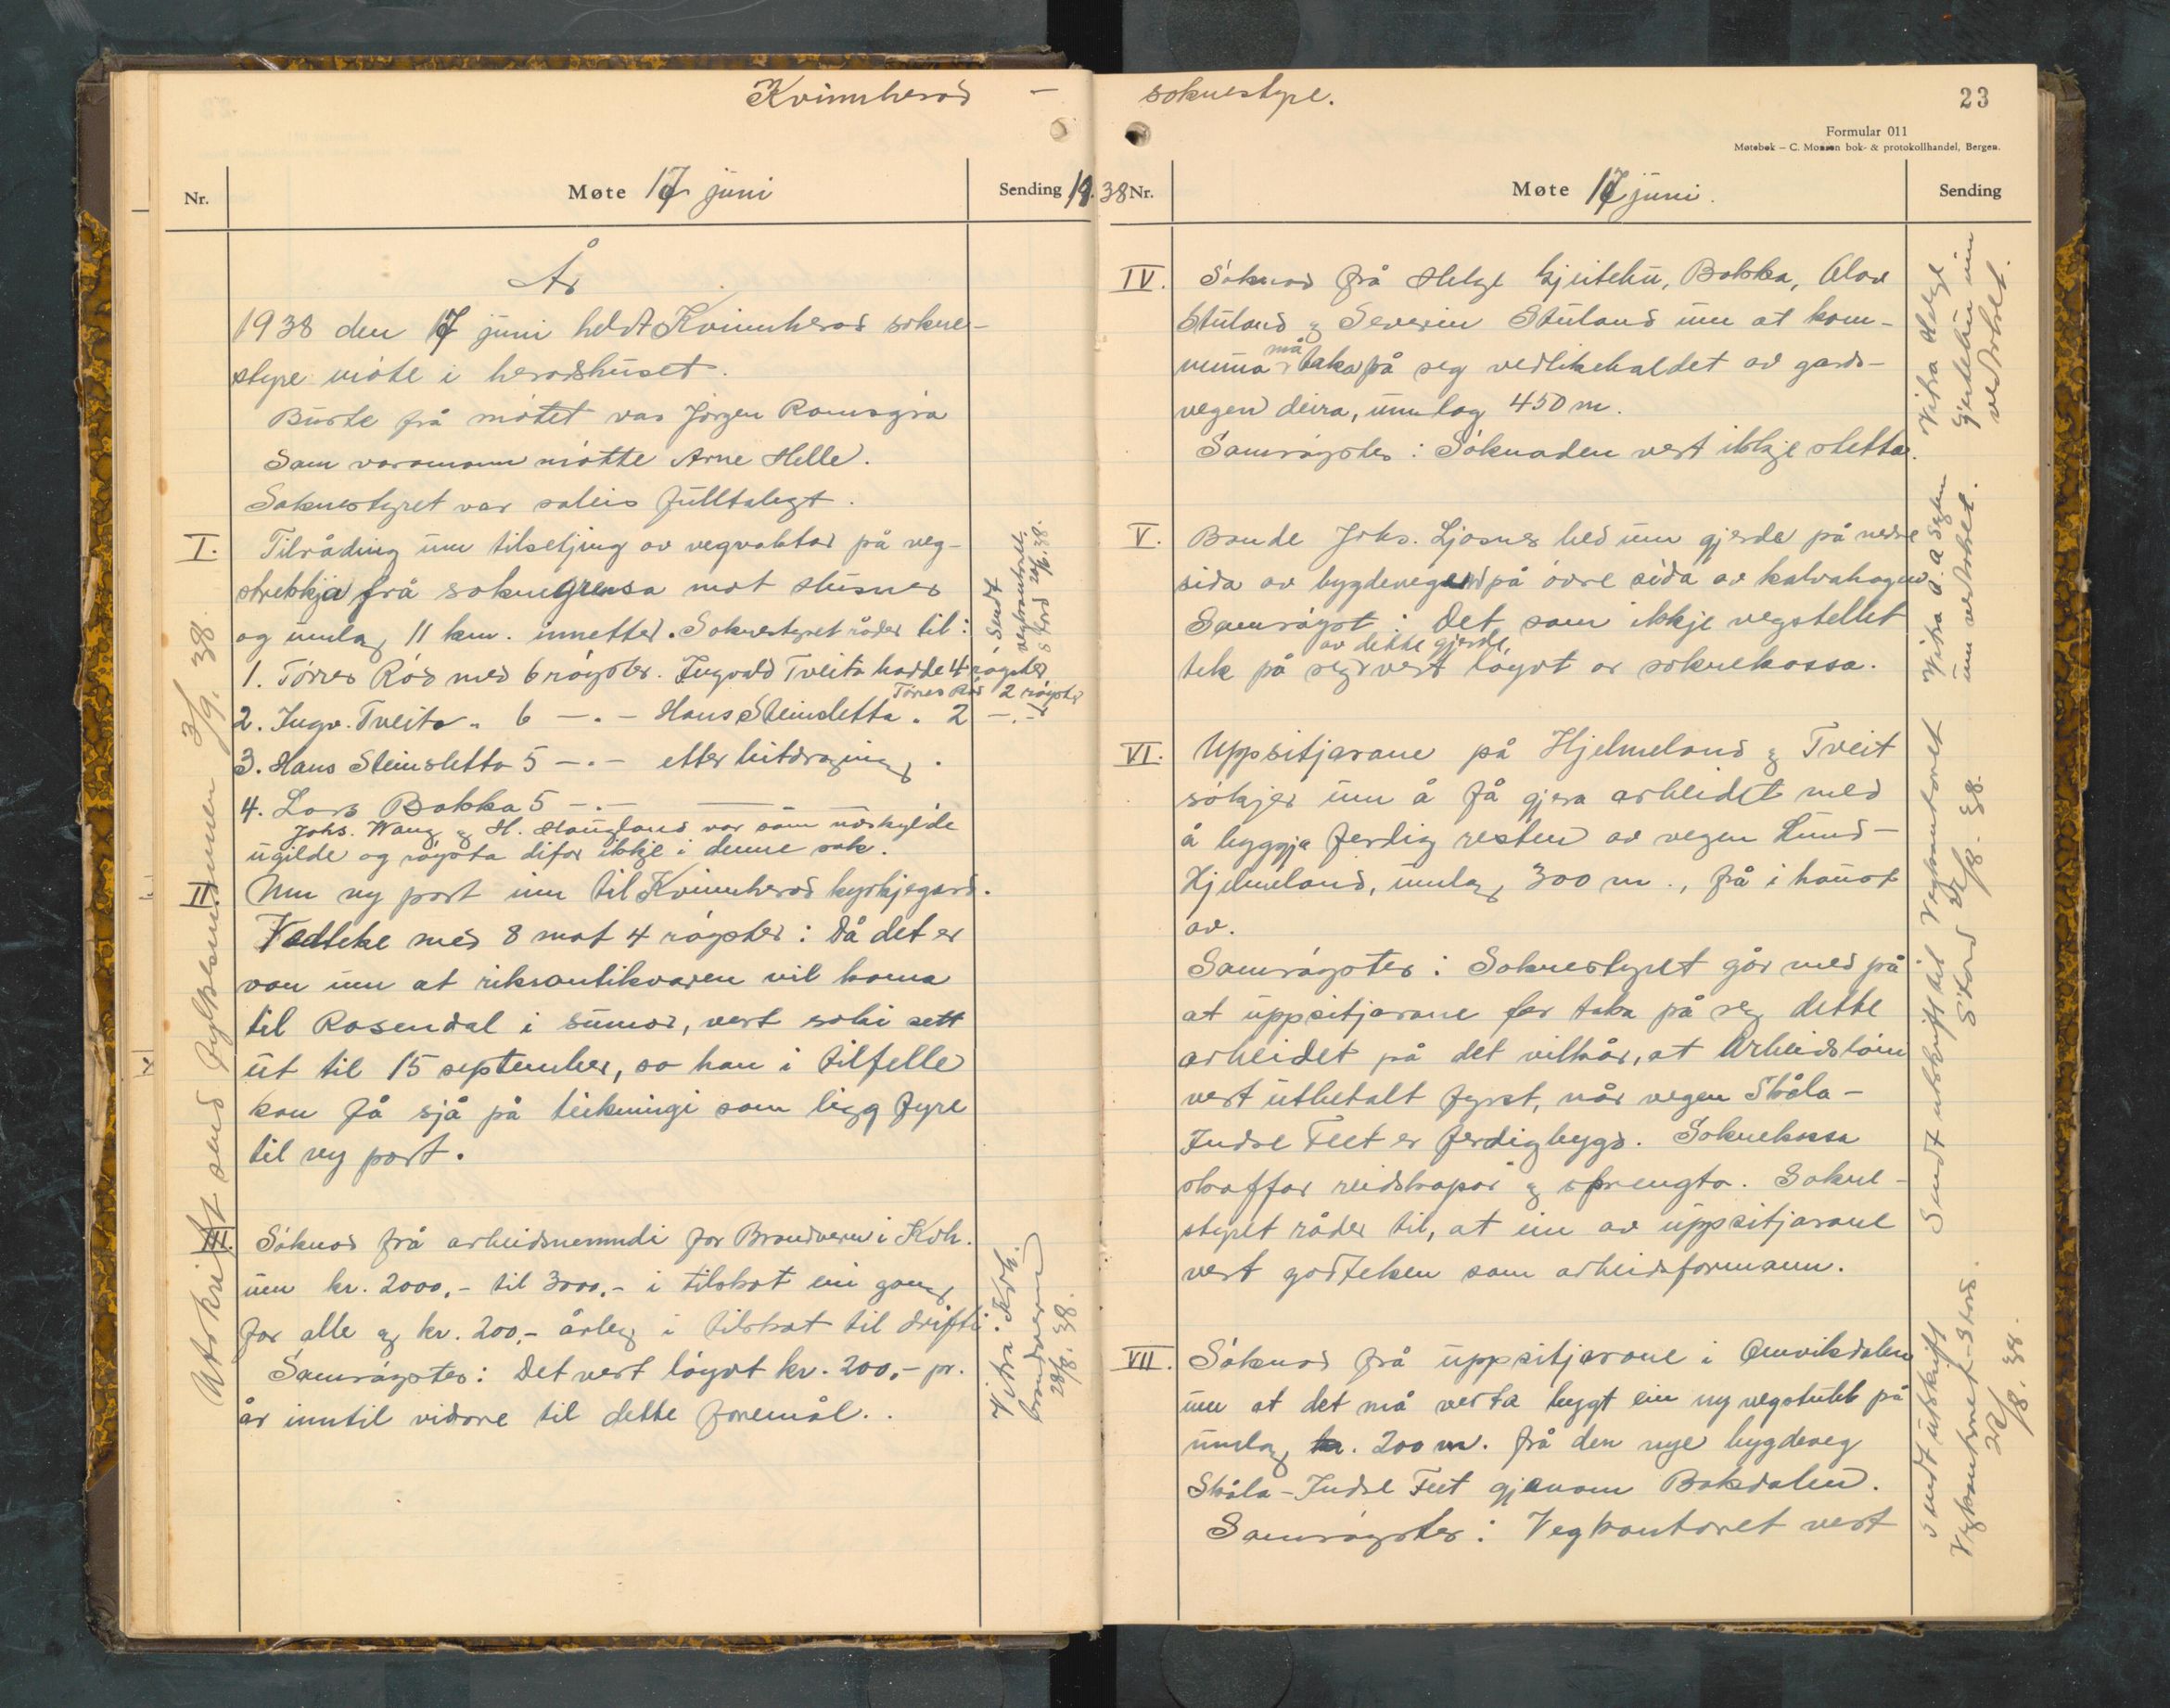 Kvinnherad –
Nr.
Møte 17 juni
Sending 19
År
1938 den 17 juni heldt Kvinnherad sokne-
styre møte i heradshuset.
Burte frå møtet var Jørgen Ramsgrå
Som varamann møtte Arne Helle.
Soknestyret var soleis fulltalegt.
I. Tilråding um tilsetjing av vegvaktar på veg-
strekkja frå soknegrensa mot Husnes
og umlag 11 km. innetter. Soknestyret råder til:
1. Tørres Rød med 6 røyster. Ingvald Tveita hadde 4 røyster
Tørres Rød 2 røyster
2. Ingv. Tveita " 6 –"– Hans Steinsletta " 2 –"–
3. Hans Steinsletta 5 –"– etter lutdraging.
4. Lars Bakka 5 –"–
Johs. Wang og H. Haugland var som nærskylde
ugilde og røysta difor ikkje i denne sak.
II Um ny port inn til Kvinnherad kyrkjegard.
Vedteke med 8 mot 4 røyster: Då det er
von um at riksantikvaren vil koma
til Rosendal i sumar, vert saki sett
ut til 15 september, so han i tilfelle
kan få sjå på teikningi som ligg fyre
til ny port.
III. Søknad frå arbeidsnemndi for Brandvern i Kvh.
um kr. 2000,- til 3000,- i tilskot ein gong
for alle og kr. 200,- årleg i tilskot til drifti.
Samrøystes: Det vert løyvt kr. 200,- pr.
år inntil vidare til dette fyremål.
Utskrift send fylkesmannen 3/9. 38.
Sendt
vegkontoret,
Stord 24/6. 38.
Vitra Kvh.
brandvern
28/8. 38.
soknestyre.
23
Formular 011
Møtebok – C. Monsen bok- & protokollhandel, Bergen.
38 Nr.
Møte 17 juni.
Sending
IV. Søknad frå Helge Gjutehu, Bakka, Olav
Stuland og Severin Stuland um at kom-
muna må taka på seg vedlikehaldet av gards-
vegen deira, umlag 450 m.
Samrøystes: Søknaden vert ikkje stetta.
V. Bonde Johs. Ljosnes bed um gjerde på nedre
sida av bygdevegen på øvre sida av kalvahagen
Samrøyst: Det som ikkje vegstellet
av dette gjerde,
tek på seg vert løyvt av soknekassa.
VI. Uppsitjarane på Hjelmeland og Tveit
søkjer um å få gjera arbeidet med
å byggja ferdig resten av vegen Lund-
Hjelmeland, umlag 300 m., frå i haust
av.
Samrøystes: Soknestyret går med på
at uppsitjarane fær taka på seg dette
arbeidet på det vilkår, at Arbeidsløni
vert utbetalt fyrst, når vegen Skåla-
Indre Feet er ferdigbygd. Soknekassa
skaffar reidskapar og sprengto. Sokne-
styret råder til, at ein av uppsitjarane
vert godteken som arbeidsformann.
VII. Søknad frå uppsitjarane i Omvikdalen
um at det må verta bygt ein ny vegstubb på
umlag 200 m. frå den nye bygdeveg
Skåla-Indre Feet gjenom Bakdalen.
Samrøystes: Vegkontoret vert
Vitra Helge
Gjutehu um
vedtaket.
Vitra
um vedtaket.
Sendt utskrift til Vegkontoret
Stord 22/8. 38.
Sendt utskrift
Vegkontoret-Stord.
22/8. 38.